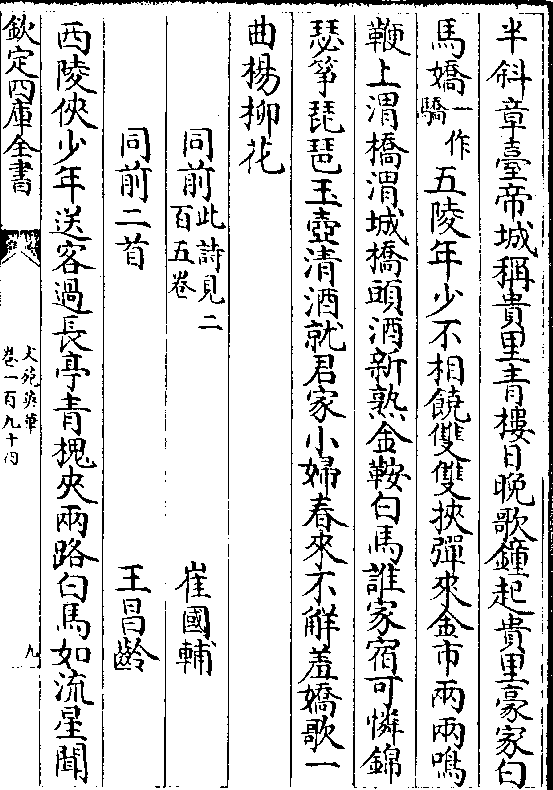 半斜章臺帝城稱貴里青樓日晚歌鐘起貴里豪家白
馬嬌一作驕五陵年少不相饒雙雙挾彈來金市兩兩鳴
鞭上渭橋渭城橋頭酒新熟金鞍白馬誰家宿可憐錦
瑟箏琵琶玉壺清酒就君家小婦春來不解羞嬌歌一
曲楊柳花
同前此詩見二百五卷 崔國輔
同前二首 王昌齡
西陵俠少年送客過長亭青槐夾兩路白馬如流星聞
欽定四庫全書
文苑英華
卷一百九十四
九